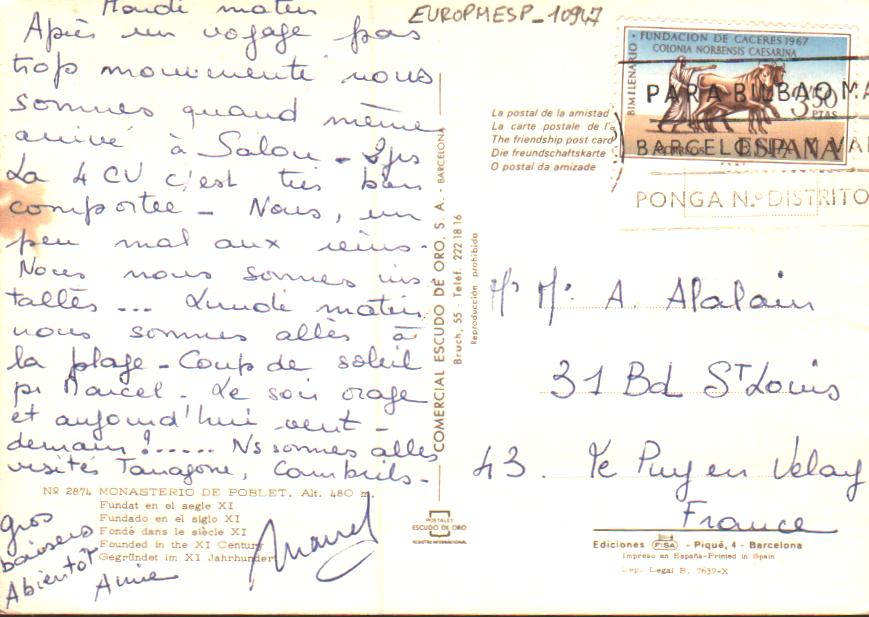 Mardi matin
Après un voyage pas
trop mouvementé nous
sommes quand même
arrivé à Salou -
La 4 CV c'est très bien
comportée - Nous, un
peu mal aux reins.
Nous nous sommes ins
tallès ... Lundi matin
nous sommes allès à
la plage - Coup de soleil
pr Marcel. Le soir orage
et aujourd'hui vent -
demain !...... Ns sommes alles
visités Tarragone, Cambrils.
Nº 2874 MONASTERIO DE POBLET. Alt. 480 m.
Fundat en el segle XI
Fundado en el siglo XI
Fondé dans le siècle XI
Founded in the XI Century
Gegründet im XI Jahrhundert
gros
baisers
A bientôt
Annie
Marcel
COMERCIAL ESCUDO DE ORO, S. A. - BARCELONA
Bruch, 55 - Teléf. 222 18 16
Reproducción prohibida
POSTALES
ESCUDO DE ORO
REGISTRO INTERNACIONAL
EUROPMESP_10947
La postal de la amistad
La carte postale de l'a
The friendship post card
Die freundschaftskarte
O postal da amizade
BIMILENARIO
FUNDACION DE CACERES 1967
COLONIA NORBENSIS CAESARINA
3,50
PTAS
CORREOS
ESPAÑA
PARA BILBAO MA
BARCELONA VA
PONGA N.º DISTRITO
Mr Me A. Alalain
31 Bd ST Louis
43. Le Puy en Velay
France
Ediciones FISA - Piqué, 4 - Barcelona
Impreso en España-Printed in Spain
Dep. Legal B. 7637-X